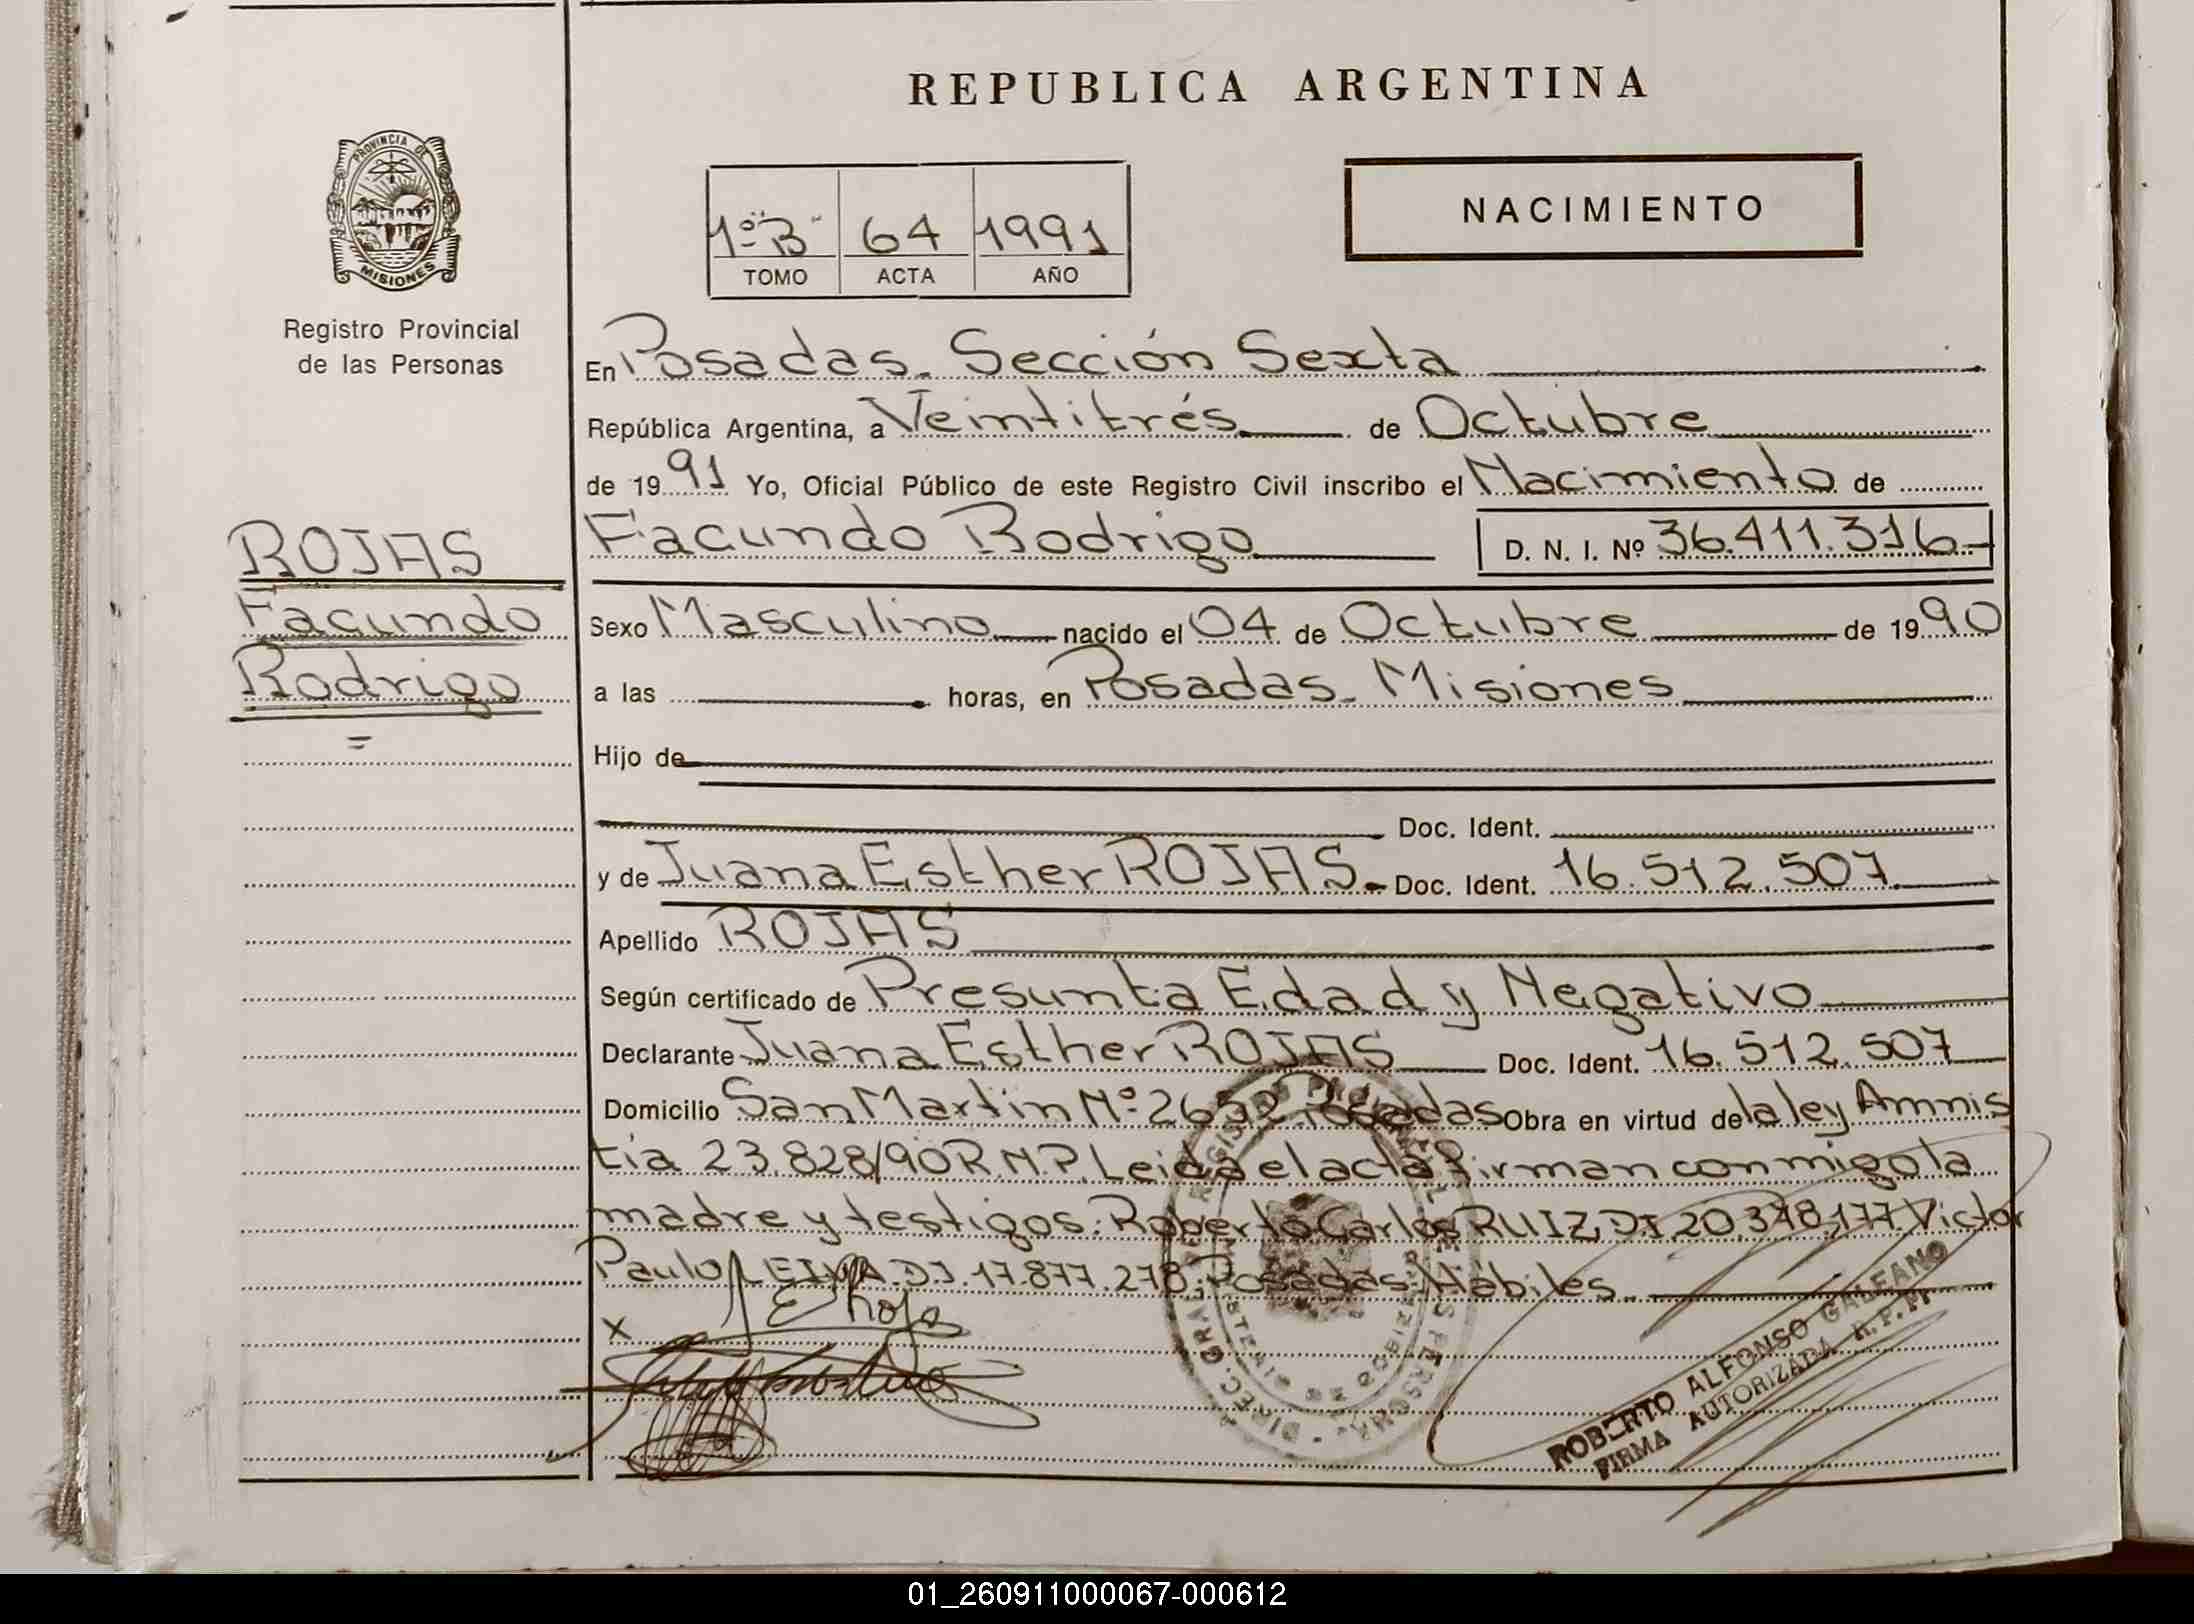 REPUBLICA ARGENTINA
PROVINCIA DE
MISIONES
Registro Provincial
de las Personas
1º "B" 64 1991
TOMO ACTA AÑO
NACIMIENTO
ROJAS
Facundo
Rodrigo
En Posadas. Sección Sexta
República Argentina, a Veintitrés de Octubre
de 1991 Yo, Oficial Público de este Registro Civil inscribo el Nacimiento de
Facundo Rodrigo D. N. I. Nº 36.411.316
Sexo Masculino nacido el 04 de Octubre de 1990
a las horas, en Posadas. Misiones
Hijo de
Doc. Ident.
y de Juana Esther ROJAS. Doc. Ident. 16.512.507
Apellido ROJAS
Según certificado de Presunta Edad y Negativo
Declarante Juana Esther ROJAS Doc. Ident. 16.512.507
Domicilio San Martin Nº 2652 Posadas Obra en virtud de la ley Amnis
tía 23.828/90 R.N.P. Leida el acta firman conmigo la
madre y testigos: Roberto Carlos RUIZ, D.I 20.378.177. Victor
Paulo LEIVA D.I. 17.877.278. Posadas. Hábiles.
x E Roja
ROBERTO ALFONSO GALEANO
FIRMA AUTORIZADA R. P. P.
01_260911000067-000612